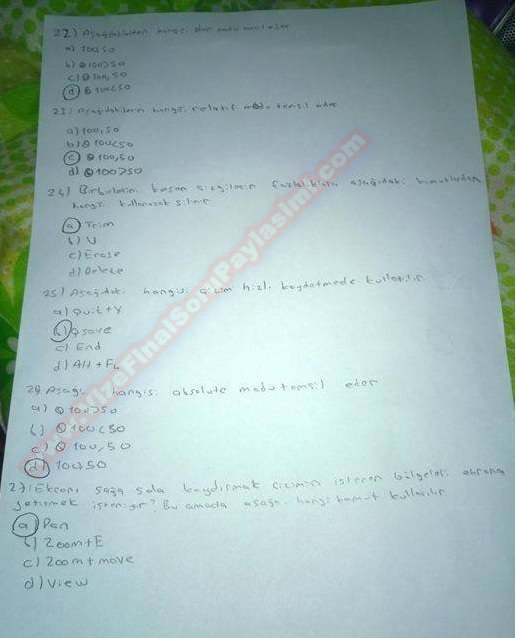 22) Aşağıdakilerden hangisi polar modu temsil eder
a) 100<50
b) @100>50
c) @100,50
d) @100<50
23) Aşağıdakilerin hangisi relatif modu temsil eder
a) 100,50
b) @100<50
c) @100,50
d) @100>50
24) Birbirlerini kesen çizgilerin fazlalıkları aşağıdaki komutlardan
hangisi kullanarak silinir
a) Trim
b) U
c) Erase
d) Delete
25) Aşağıdaki hangisi çizim hızlı kaydetmede kullanılır
a) Quit+Y
b) Qsave
c) End
d) Alt+F4
hangisi absolute modu temsil eder
a) @100>50
b) @100<50
c) @100,50
d) 100,50
27) Ekranı sağa sola kaydırmak çizimin istenen bölgeleri ekrana
getirmek isteniyor? Bu amaçla aşağı hangi komut kullanılır
a) Pan
b) Zoom+E
c) Zoom+move
d) View
www.VizeFinalSoruPaylasimi.com